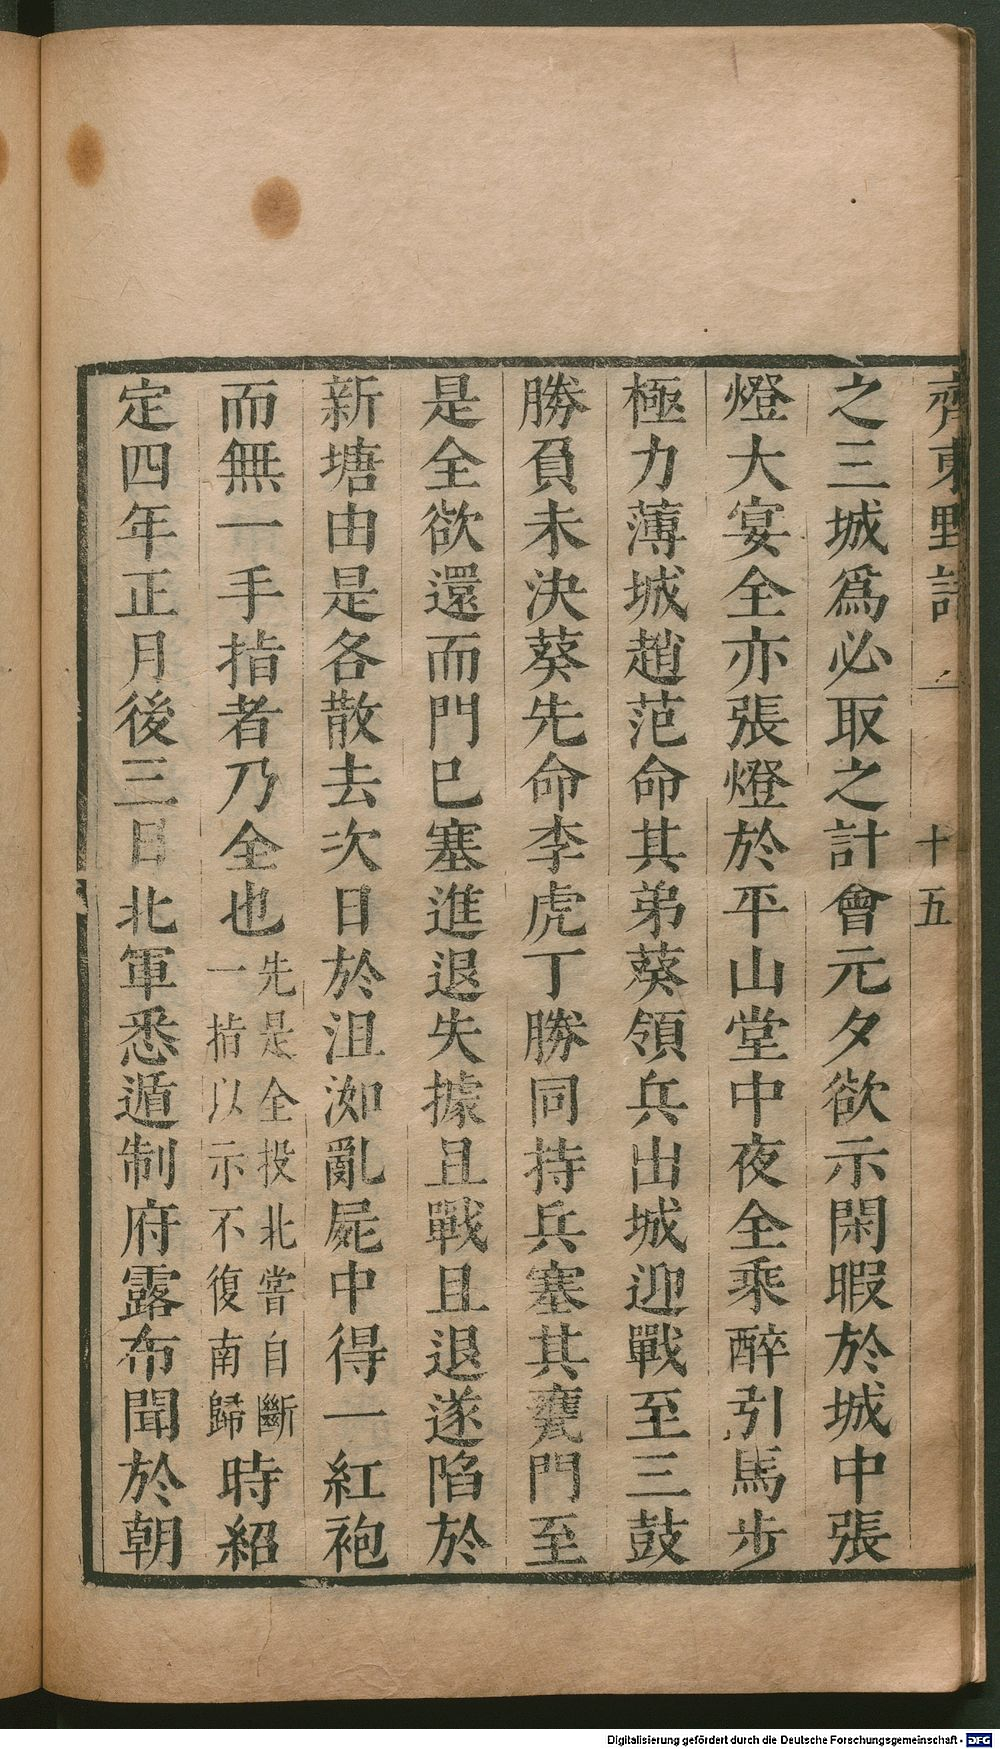 齊東野語
十五
之三城爲必取之計會元夕欲示閑暇於城中張
燈大宴全亦張燈於平山堂中夜全乘醉引馬步
極力薄城趙范命其弟葵領兵出城迎戰至三鼓
勝負未決葵先命李虎丁勝同持兵塞其甕門至
是全欲還而門已塞進退失據且戰且退遂陷於
新塘由是各散去次日於沮洳亂屍中得一紅袍
而無一手指者乃全也先是全投北嘗自斷一指以示不復南歸時紹
定四年正月後三日北軍悉遁制府露布聞於朝
Digitalisierung gefördert durch die Deutsche Forschungsgemeinschaft - DFG